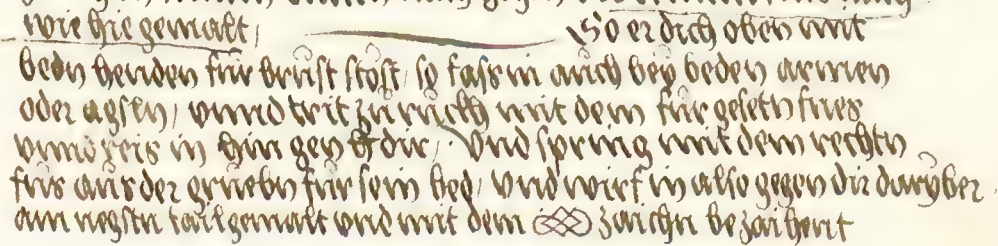 wie hie gemalt / So er dich oben mit
bedn henden für brüst stöst / so fass in aüch beÿ beden armen
oder agsln / vnnd trit zu ruckh mit dem für gesetn fües
vnnd reis in hin gen dir / Vnd spring mit dem rechtn
füs aüs der grüebn für sein bed / vnd wirf in also gegen dir darÿber
am negstn tail gemalt vnd mit dem zaichn bezaihent